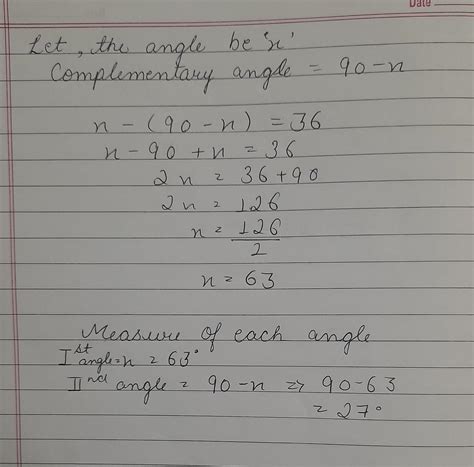 Date
Let, the angle be 'x'
Complementary angle = 90-x
x - (90 - x) = 36
x - 90 + x = 36
2x = 36 + 90
2x = 126
x = 126
2
x = 63
Measure of each angle
Ist angle = x = 63°
IInd angle = 90 - x => 90 - 63
= 27°